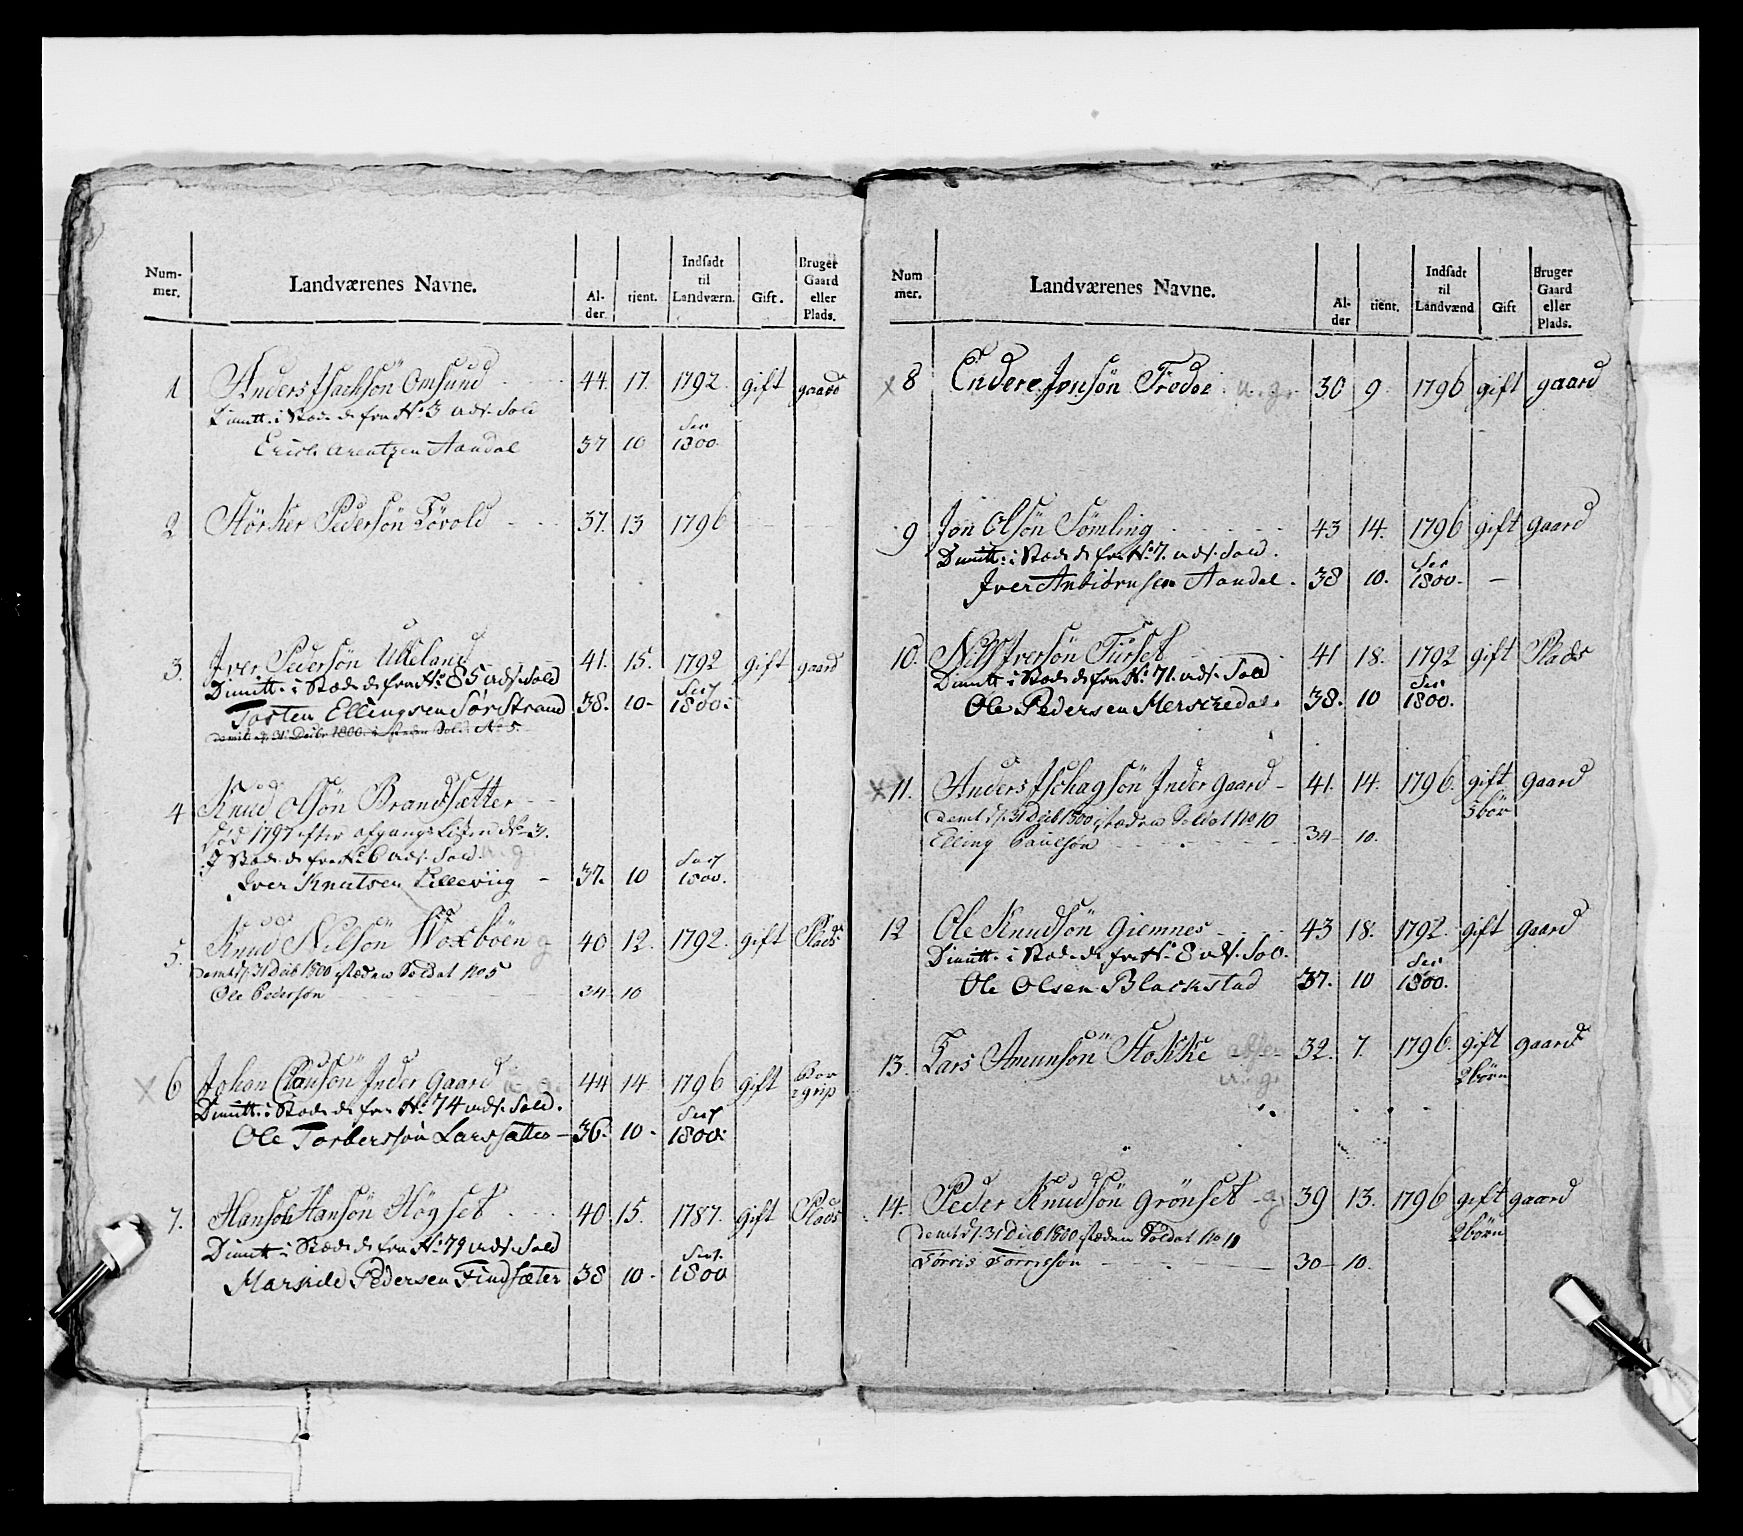 Num-
mer.
Landværenes Navne.
Al-
der.
tjent.
Indsadt
til
Landværn.
Gift.
Bruger
Gaard
eller
Plads.
1 Anders Isachsön Omsund 44. 17. 1792. gift gaard
Dimitt. i Stæde de fra No 3 nat. Sold
Erich Arentzen Aandal 37 10 1800.
2 Störker Pedersön Törold 37. 13 1796
3. Iver Pedersön Ukkeland 41. 15. 1792 gift gaard
Dimitt. i Stæde de fra No 85 nat. Sold
Torsten Ellingsen Sørstrand 38. 10- 1800.
demit. d. 31 Decbr 1800. i steden Sold. No 5.
4 Knud Olsön Brandsætter
död 1797 efter afgangs Listen No 3.
I Stæde de fra No 6 nat. Sold
Iver Knutsen Lillevüg - 37. 10 1800.
5. Knud Nilsön Woxböen g 40 12. 1792. gift Plads
demt d. 31 Decb 1800 isteden Soldat No 5
Ole Pedersön 34 10
x 6 Johan Clausön Inder gaard 44 14 1796 gift
Dimitt. i Stæde de fra No 74 nat. Sold.
Ole Torbersön Larssætter - 36. 10- 1800.
7. Hansole Hansön Högset 40 15. 1787. gift Plads
Dimitt. i Stæde de fra No 79 nat. Sold
Marskile Pedersen Findsæter 38 10- 1800
Num
mer.
Landværenes Navne.
Al-
der
tient.
Indsadt
til
Landværnd
Gift
Bruger
Gaard
eller
Plads.
x 8 Endere Jonsön Tredal u. g. 30 9. 1796 gift gaard
9 Jon Olsön Sömling 43 14. 1796 gift gaard
Dimitt. i Stæde de fra No 7. nat. Sold.
Iver Anbiörnsen Aandal. 38 10. 1800. -
10. Nills Iversön Türset 41 18. 1792 gift Plads
Dimitt. i Stæde de fra No 71. nat. Sold
Ole Pedersen Merschedal. 38. 10 1800.
x 11. Anders Ischagsön Inder gaard - 41. 14. 1796. gift gaard
5 bör
demt d. 31 Decb 1800 isteden Soldat No 10
Elling Paulsön 34- 10.
12 Ole Knudsön Giemnes 43 18. 1792. gift gaard
Dimitt. i Stæde de fra No 8 nat. Sol.
Ole Olsen Blackstad 37. 10 1800.
13. Lars Amunsön Stokke 32. 7. 1796. gift gaard
2 börn
14. Peder Knudsön Grönset g 39 13. 1796 gift gaard
2 börn
demt d. 31 Decb 1800 isteden Soldat No 11
Törris Törrissön 30- 10.